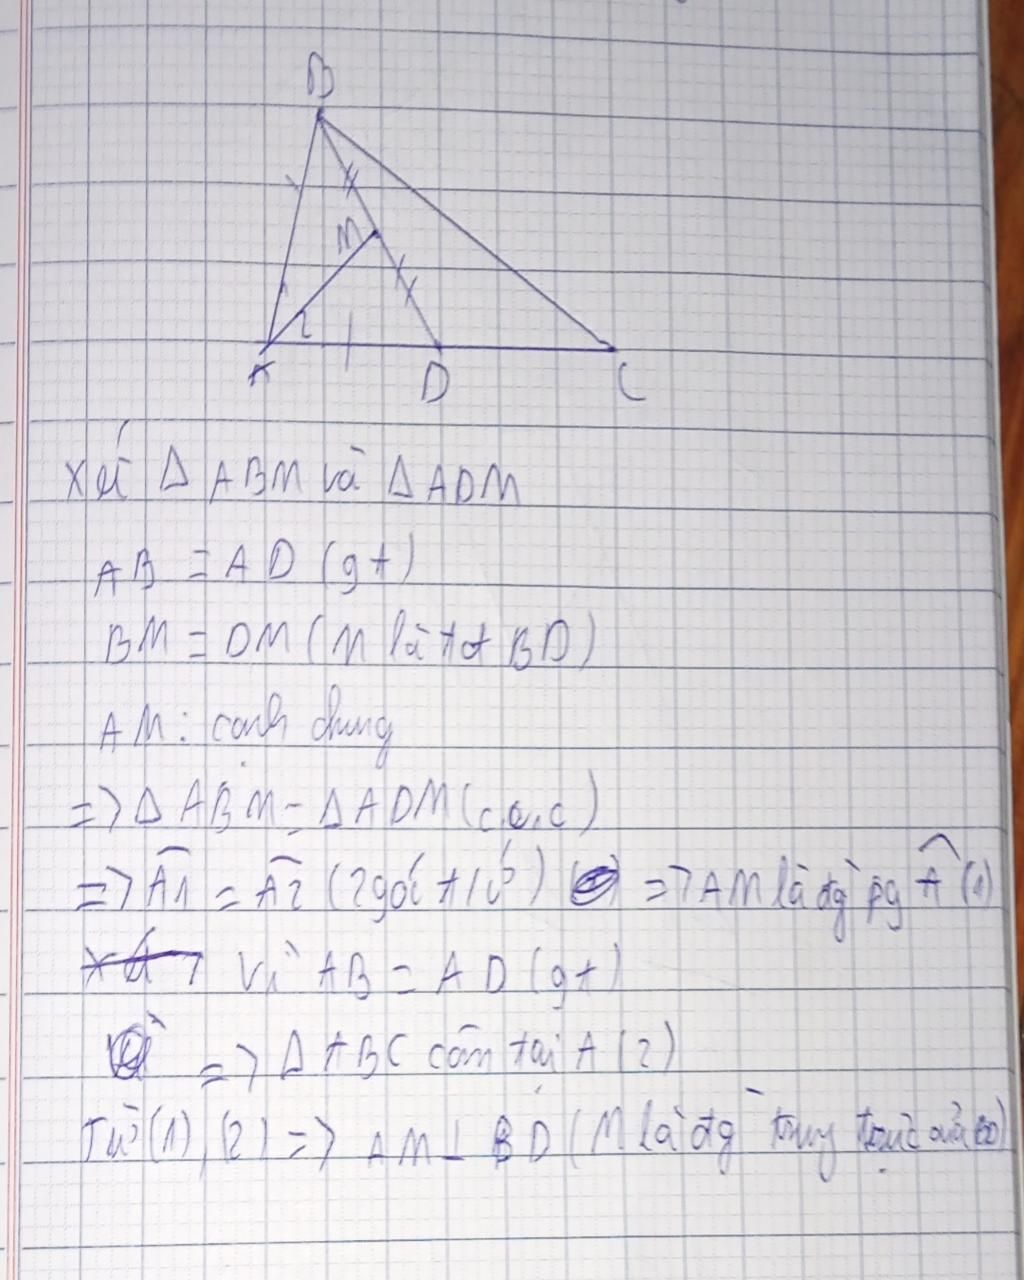 B
M
2
A D C
Xét Δ ABM và Δ ADM
AB = AD (gt)
BM = DM (M là tđ BD)
AM: cạnh chung
=> Δ ABM = Δ ADM (c.c.c)
=> A1 = A2 (2 góc t/ứ) => AM là đg pg A (1)
Vì AB = AD (gt)
=> Δ ABC cân tại A (2)
Từ (1), (2) => AM ⊥ BD (M là đg trung trực của BD)